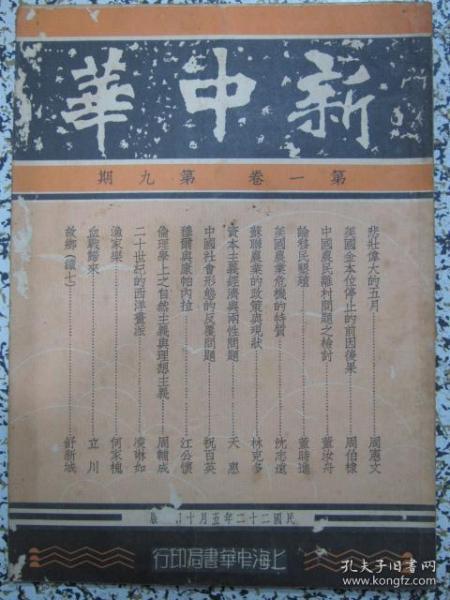 新中華
第一卷 第九期
悲壯偉大的五月……周憲文
美國金本位停止的前因後果……周伯棣
中國農民離村問題之檢討……董汝舟
論移民墾殖……董時進
美國農業危機的特質……沈志遠
蘇聯農業的政策與現狀……林克多
資本主義經濟與兩性問題……天惠
中國社會形態的反覆問題……祝百英
穆爾與康帕內拉……江公懷
倫理學上之自然主義與理想主義……周輔成
二十世紀的西洋畫派……凌琳如
漁家樂……何家槐
血戰歸來……立川
故鄉(續七)……舒新城
民國二十二年五月十日 版
上海中華書局印行
孔夫子旧書网
www.kongfz.com